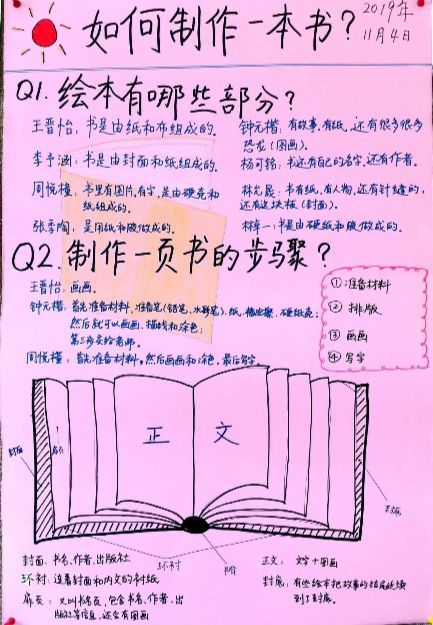 如何制作一本书?
2019年
11月4日
Q1.绘本有哪些部分?
王晋怡:书是由纸和布组成的.
李予涵:书是由封面和纸组成的.
周悦橦:书里有图片,有字,是由硬壳和
纸组成的.
张季陶:是用纸和胶做成的.
钟元楷:有故事.有纸.还有很多很多
恐龙(图画).
杨可铭:书还有自己的名字.还有作者.
林允晨:书有纸.有人物.还有针缝的,
还有这块板(封面).
林幸一:书是由硬纸和胶做成的.
Q2.制作一页书的步骤?
王晋怡:画画.
钟元楷:首先准备材料,准备笔(铅笔、水彩笔).纸、橡皮擦、硬纸壳;
然后就可以画画、描线和涂色;
第三步交给老师。
周悦橦:首先准备材料,然后画画和涂色,最后写字。
①准备材料
②排版
③画画
④写字
正文
封面
扉页
环衬
封底
封面:书名、作者、出版社
环衬:连着封面和内文的衬纸
扉页:又叫书名页,包含书名、作者、出
版社等信息,还会有图画
正文:文字+图画
封底:有些绘本把故事的结尾延续
到了封底。